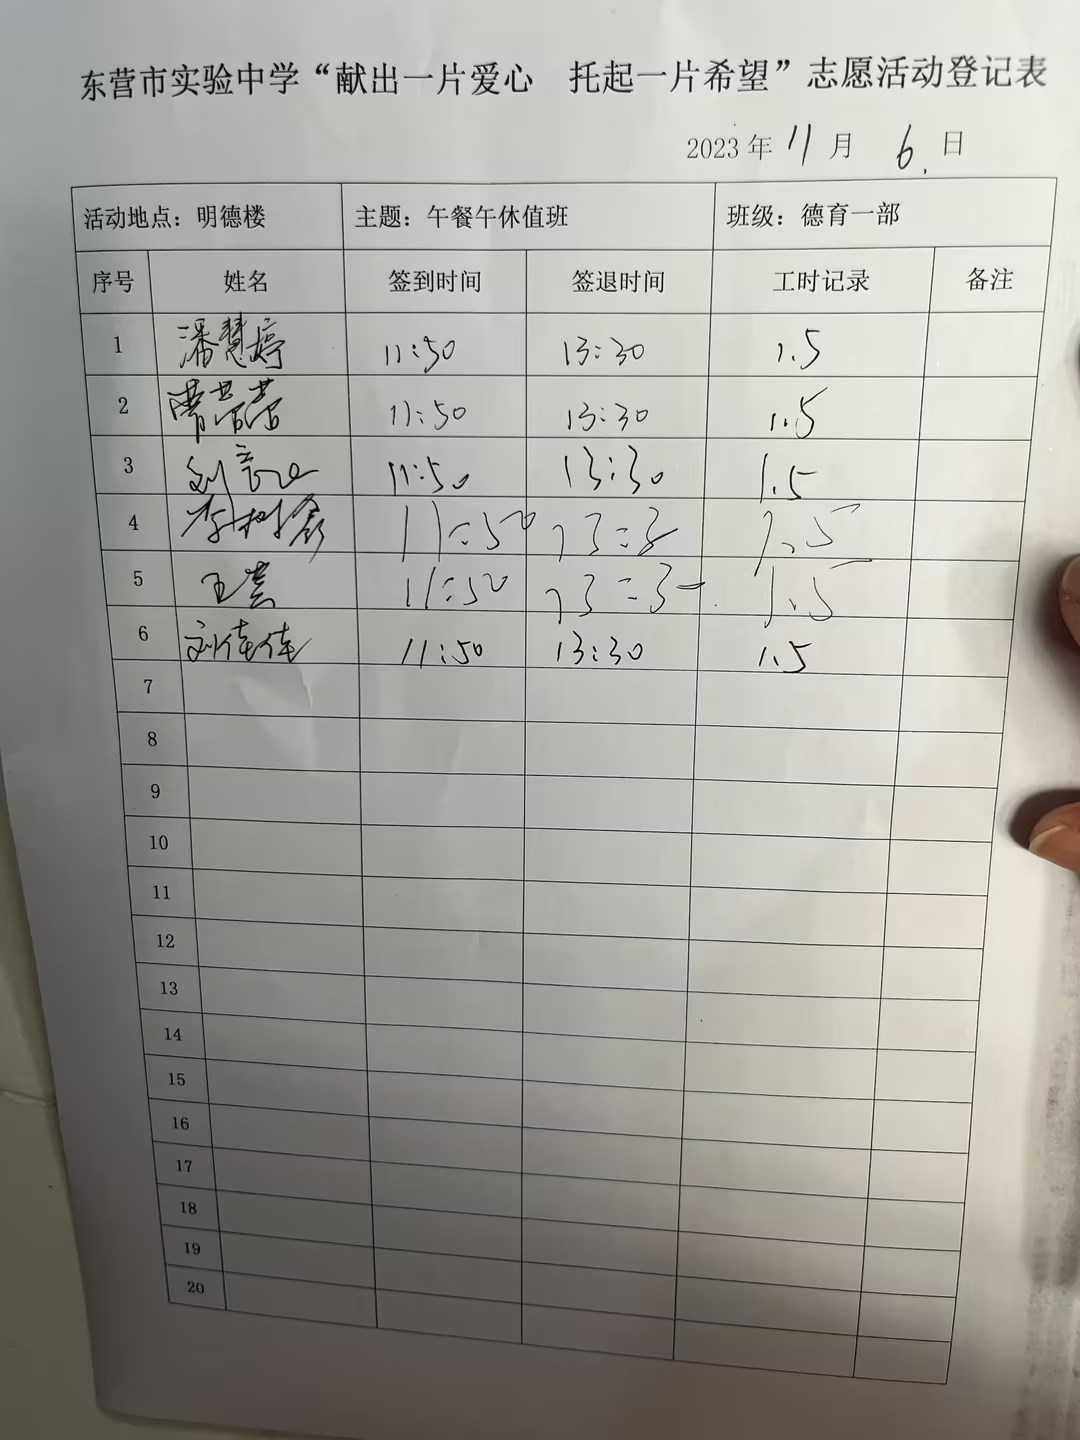 东营市实验中学“献出一片爱心 托起一片希望”志愿活动登记表
2023 年 11 月 6 日
活动地点：明德楼 主题：午餐午休值班 班级：德育一部
序号 姓名 签到时间 签退时间 工时记录 备注
1 潘慧婷 11:50 13:30 1.5
2 11:50 13:30 1.5
3 刘 11:50 13:30 1.5
4 李树鑫 11:50 13:3 1.5
5 王 11:50 13:3 1.5
6 刘佳佳 11:50 13:30 1.5
7
8
9
10
11
12
13
14
15
16
17
18
19
20